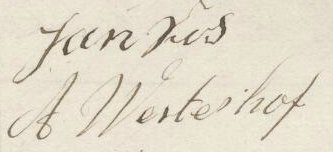 Jan Vos
A Westerhof